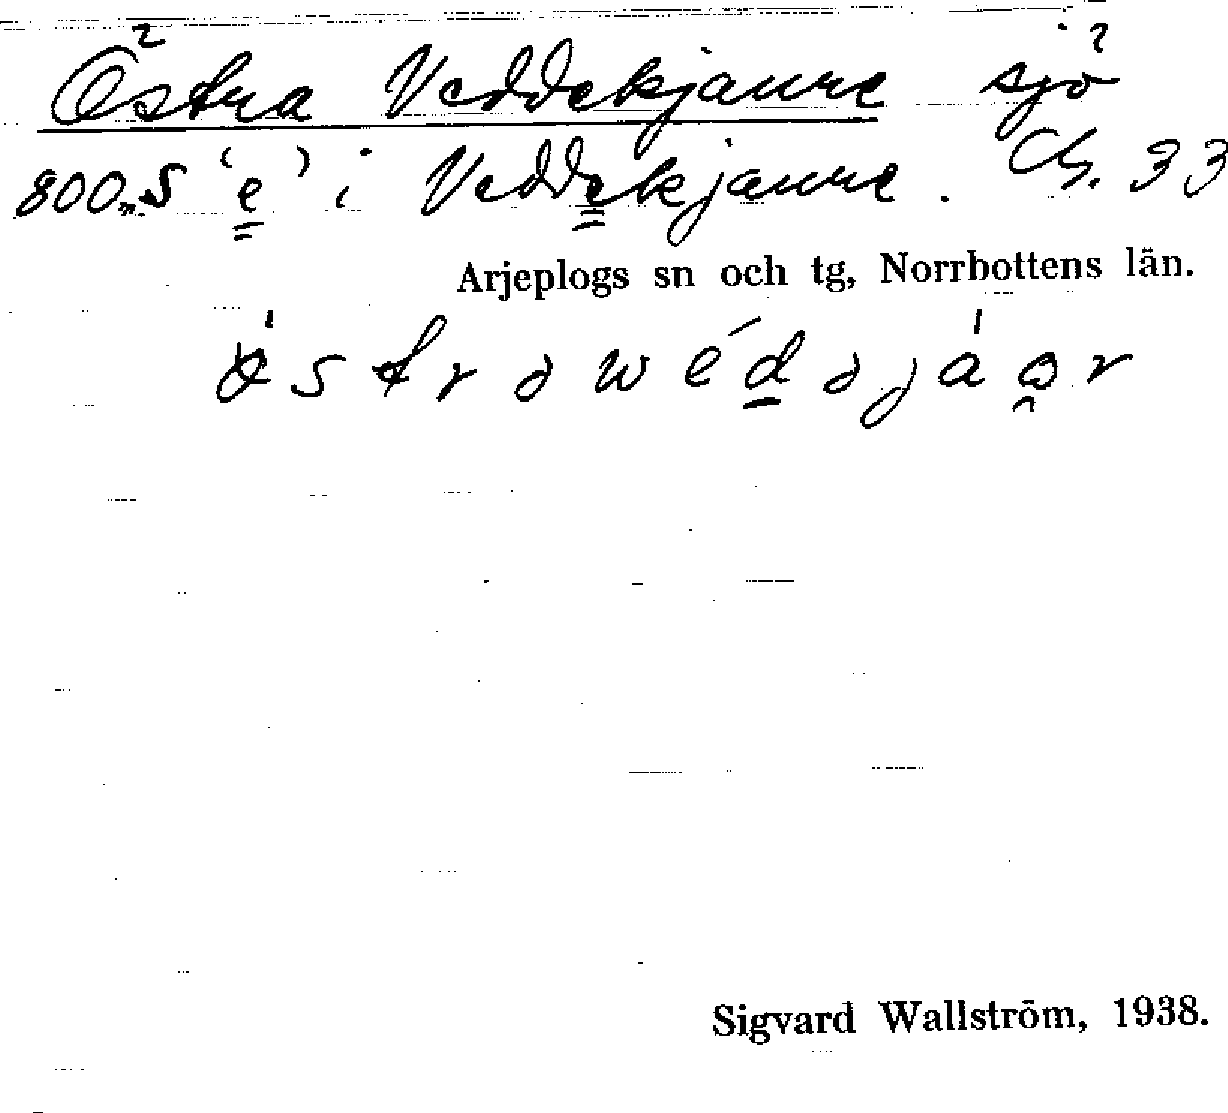 Östra Veddekjaure sjö
800 m S 'e' i Veddekjaure. 33
Arjeplogs sn och tg, Norrbottens län.
ö́strəwédəjáɷ̯r
Sigvard Wallström, 1938.